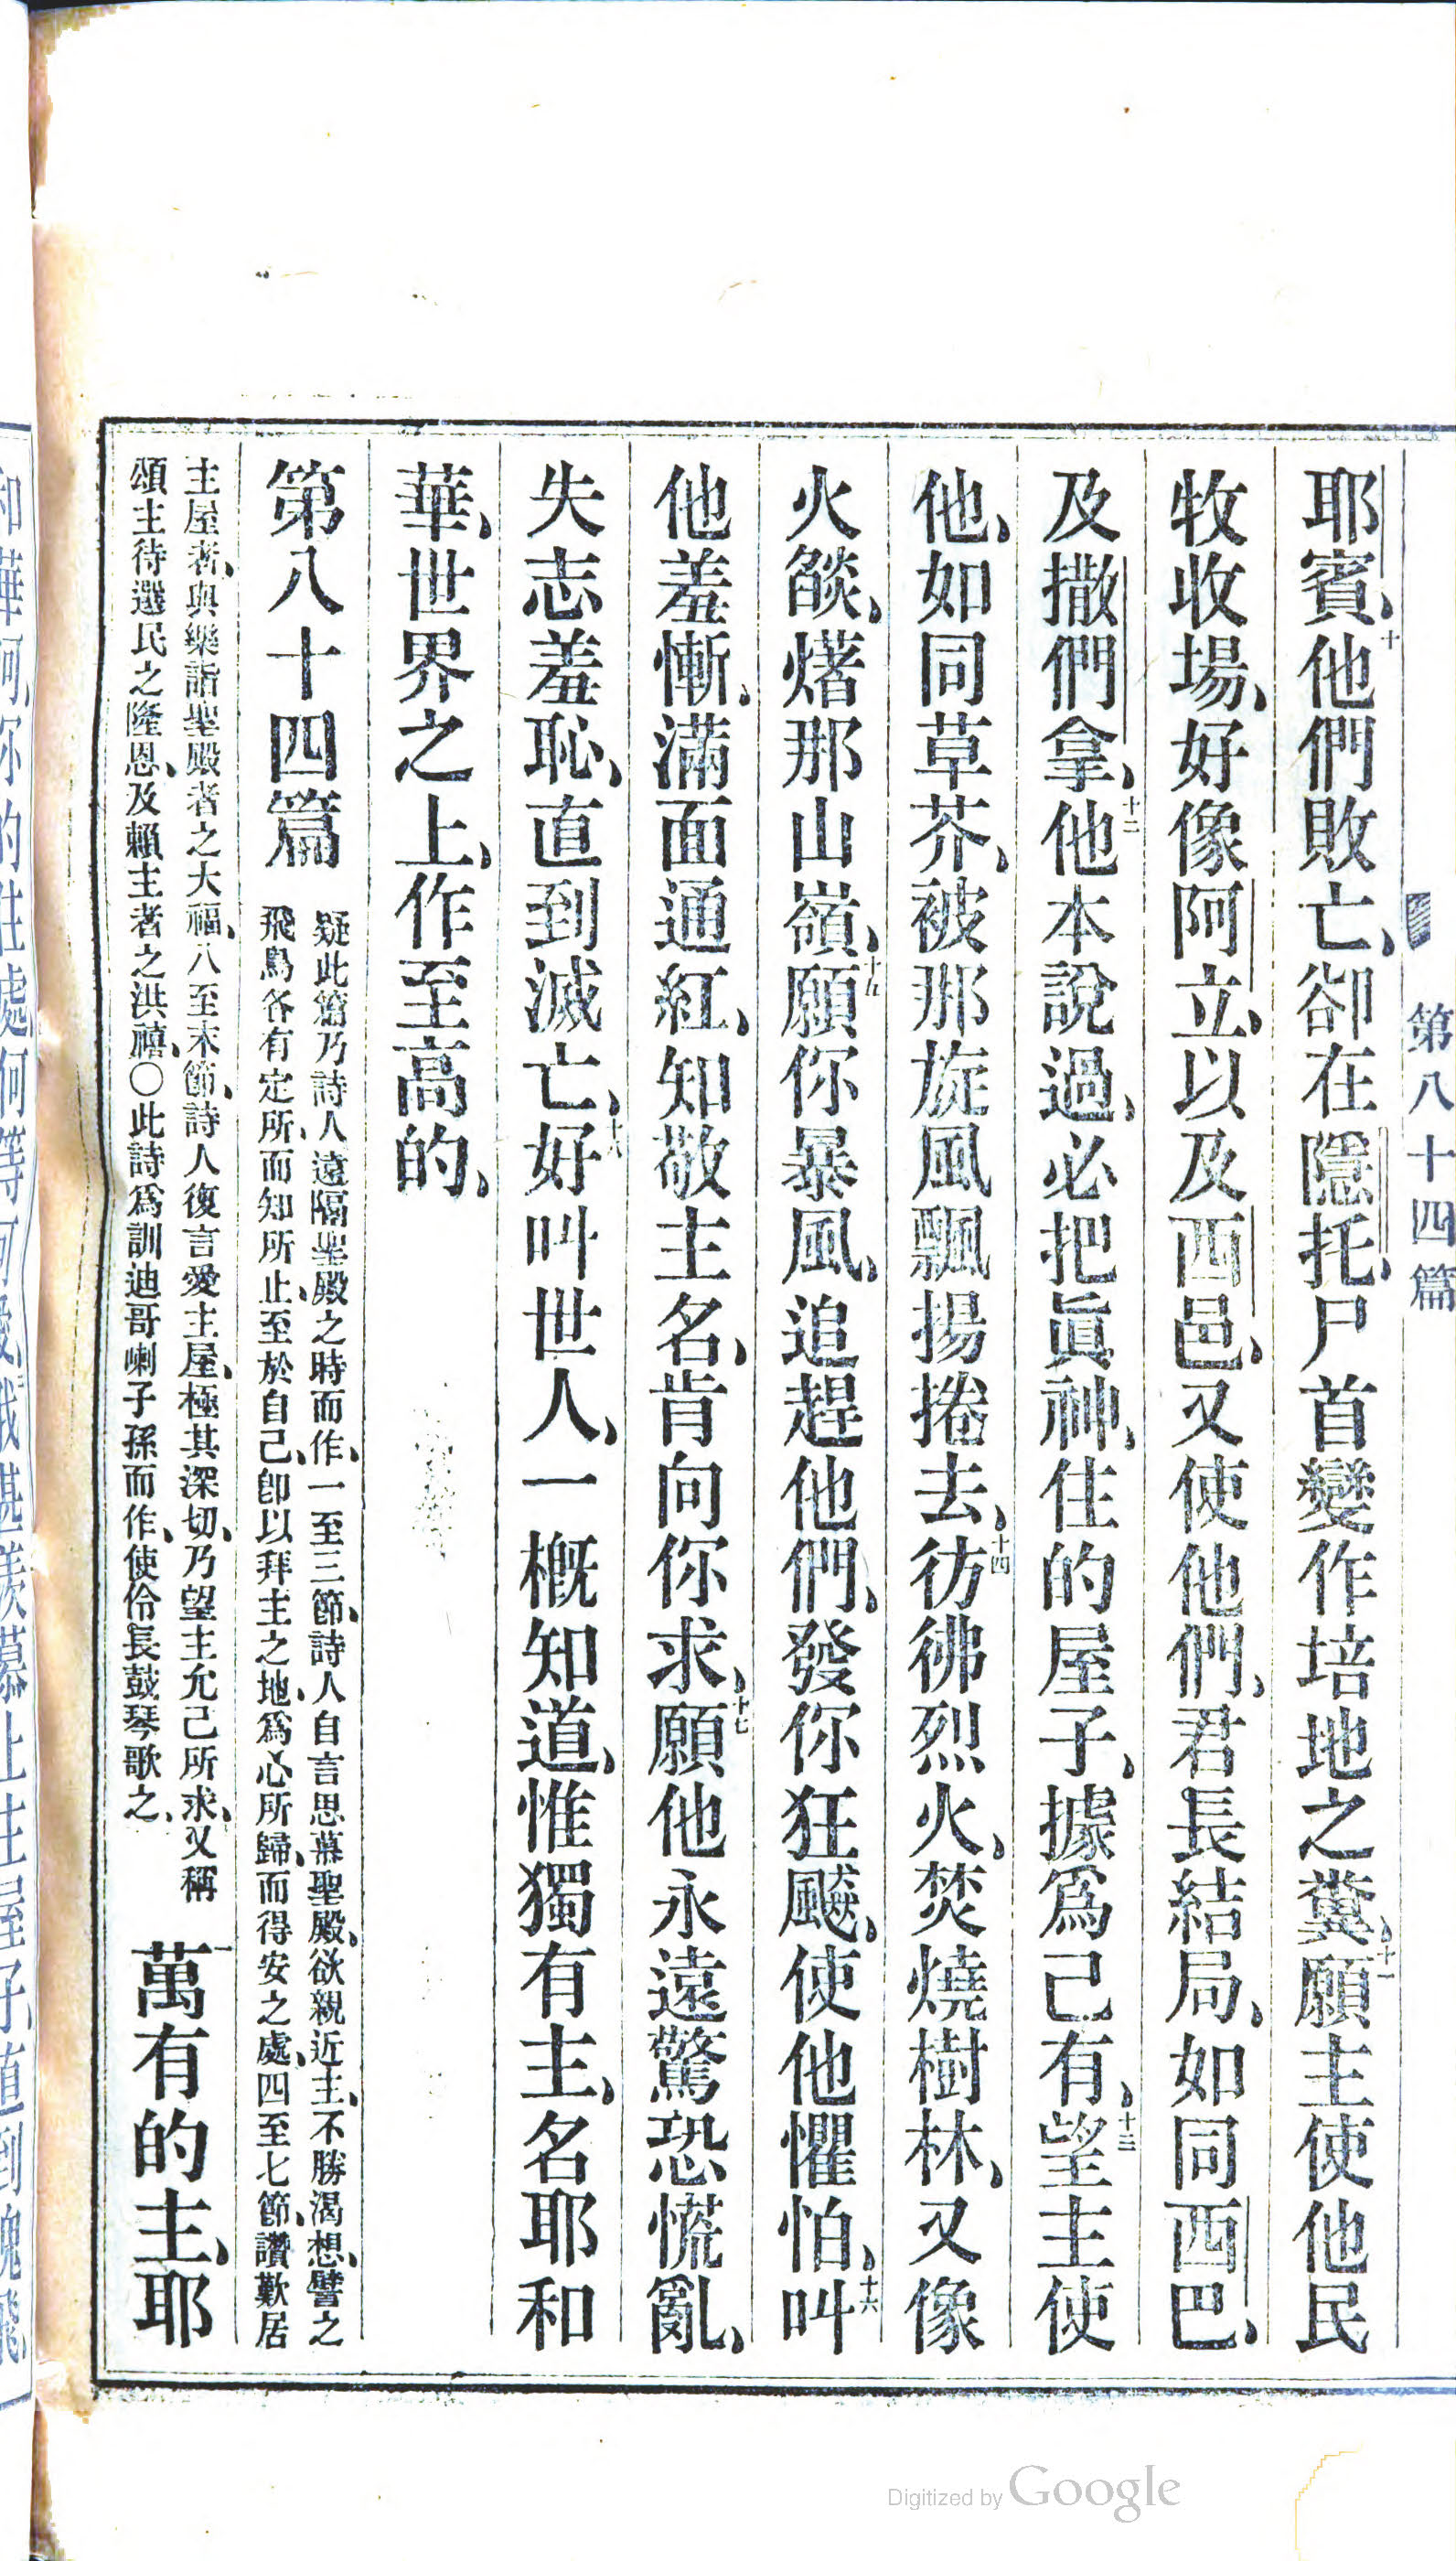 第八十四篇
耶賓、十他們敗亡、卻在隱托、尸首變作培地之糞、十一願主使他民
牧收場、好像阿立、以及西邑、又使他們、君長結局、如同西巴、
及撒們拿、十二他本說過、必把眞神、住的屋子、據爲己有、十三望主使
他、如同草芥、被那旋風飄揚捲去、十四彷彿烈火、焚燒樹林、又像
火燄、燔那山嶺、十五願你暴風、追趕他們、發你狂飈、使他懼怕、十六叫
他羞慚、滿面通紅、知敬主名、肯向你求、十七願他永遠驚恐慌亂、
失志羞恥、直到滅亡、十八好叫世人、一概知道、惟獨有主、名耶和
華、世界之上、作至高的、
第八十四篇
疑此篇乃詩人遠隔聖殿之時而作、一至三節、詩人自言思慕聖殿、欲親近主、不勝渴想、譬之
飛鳥各有定所、而知所止、至於自己、卽以拜主之地、爲心所歸、而得安之處、四至七節、讚歎居
主屋者、與樂詣聖殿者之大福、八至末節、詩人復言愛主屋、極其深切、乃望主允己所求、又稱
頌主待選民之隆恩、及賴主者之洪禧、○此詩爲訓迪哥喇子孫而作、使伶長鼓琴歌之、
一萬有的主、耶
Digitized by Google